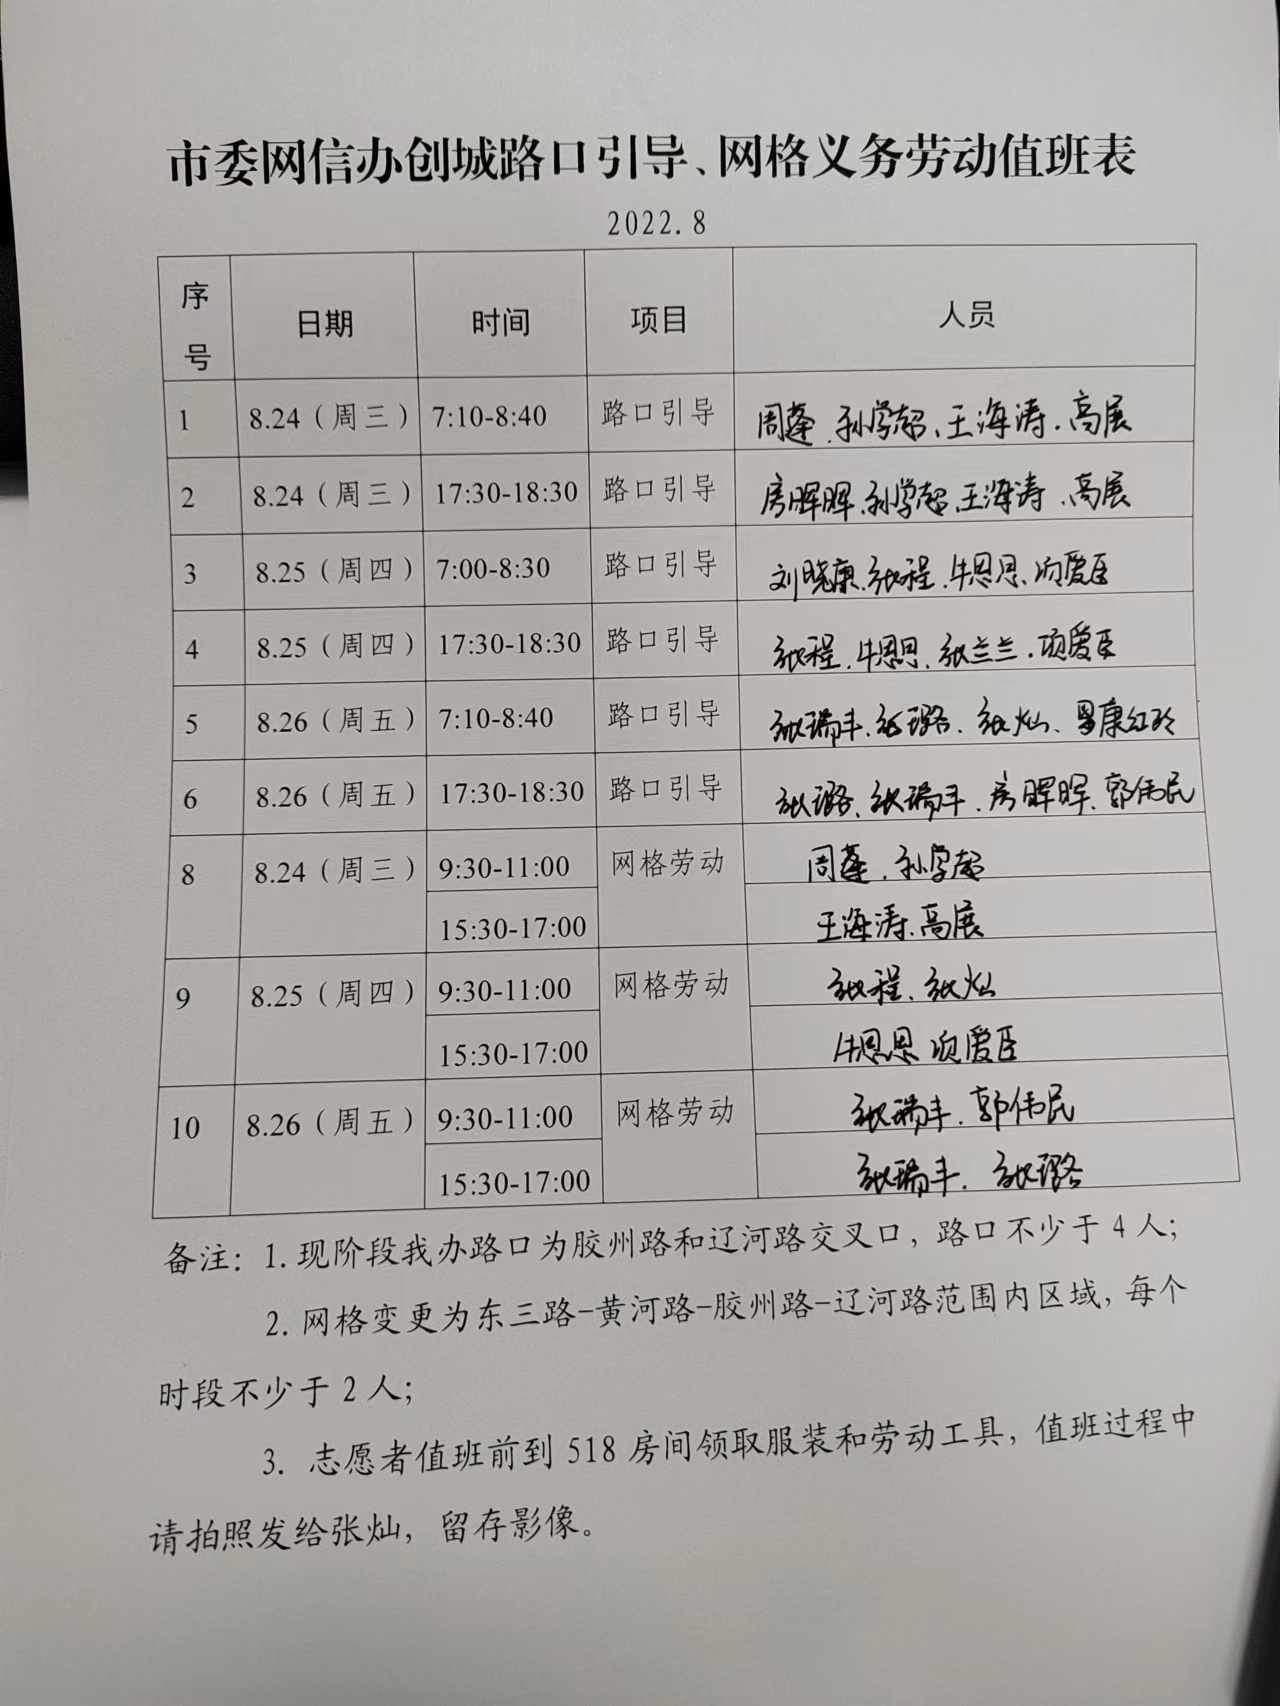 市委网信办创城路口引导、网格义务劳动值班表
2022.8
序号 日期 时间 项目 人员
1 8.24（周三） 7:10-8:40 路口引导 周蓬、孙学超、王海涛、高展
2 8.24（周三） 17:30-18:30 路口引导 房晖晖、孙学超、王海涛、高展
3 8.25（周四） 7:00-8:30 路口引导 刘晓康、张程、牛恩恩、项爱臣
4 8.25（周四） 17:30-18:30 路口引导 张程、牛恩恩、张兰兰、项爱臣
5 8.26（周五） 7:10-8:40 路口引导 张瑞丰、张璐、张灿、康红玲
6 8.26（周五） 17:30-18:30 路口引导 张璐、张瑞丰、房晖晖、郭伟民
8 8.24（周三） 9:30-11:00 网格劳动 周蓬、孙学超
15:30-17:00 王海涛、高展
9 8.25（周四） 9:30-11:00 网格劳动 张程、张灿
15:30-17:00 牛恩恩 项爱臣
10 8.26（周五） 9:30-11:00 网格劳动 张瑞丰、郭伟民
15:30-17:00 张瑞丰、张璐
备注：1.现阶段我办路口为胶州路和辽河路交叉口，路口不少于4人；
2.网格变更为东三路-黄河路-胶州路-辽河路范围内区域，每个
时段不少于2人；
3. 志愿者值班前到518房间领取服装和劳动工具，值班过程中
请拍照发给张灿，留存影像。